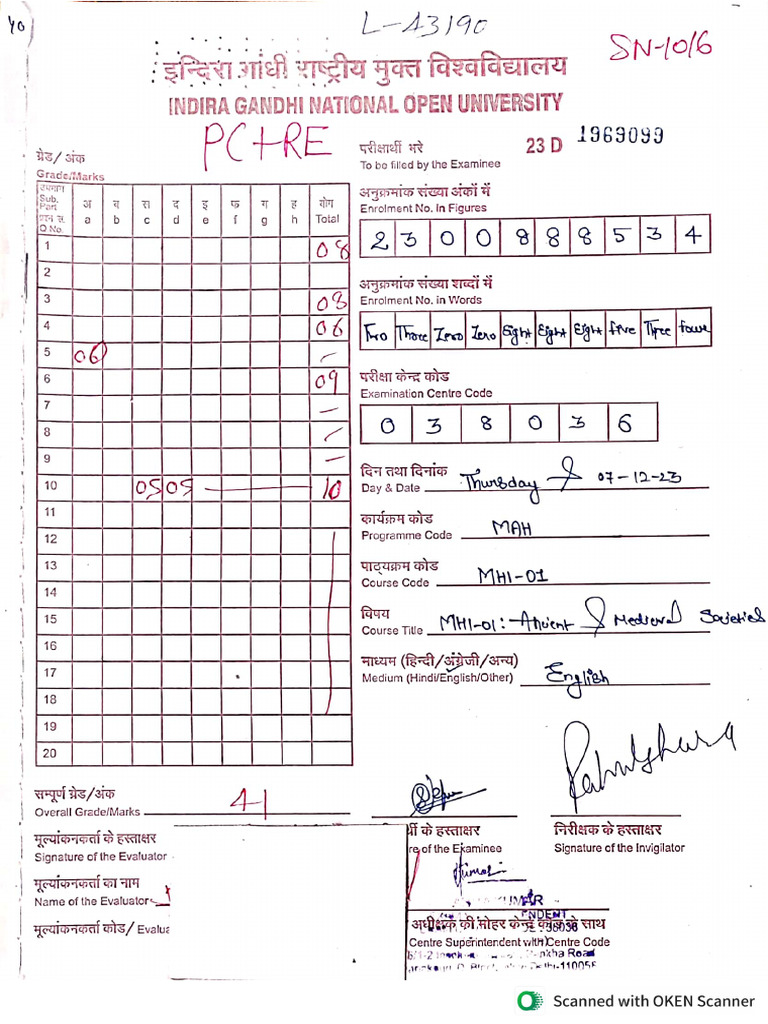 40
L-43190
SN-1016
इन्दिरा गांधी राष्ट्रीय मुक्त विश्वविद्यालय
INDIRA GANDHI NATIONAL OPEN UNIVERSITY
PC+RE
ग्रेड/अंक
Grade/Marks
उपभाग
Sub. Part
प्रश्न सं.
Q.No.
अ ब स द इ फ ग ह योग
a b c d e f g h Total
1 08
2
3 08
4 06
5 06 –
6 09
7 –
8 –
9 –
10 05 05 10
11
12
13
14
15
16
17
18
19
20
सम्पूर्ण ग्रेड/अंक
Overall Grade/Marks 41
मूल्यांकनकर्ता के हस्ताक्षर
Signature of the Evaluator
मूल्यांकनकर्ता का नाम
Name of the Evaluator
मूल्यांकनकर्ता कोड/ Evalua
परीक्षार्थी भरे 23 D 1969099
To be filled by the Examinee
अनुक्रमांक संख्या अंकों में
Enrolment No. In Figures
2 3 0 0 8 8 8 5 3 4
अनुक्रमांक संख्या शब्दों में
Enrolment No. in Words
Two Three Zero Zero Eight Eight Eight five Three four
परीक्षा केन्द्र कोड
Examination Centre Code
0 3 8 0 3 6
दिन तथा दिनांक
Day & Date Thursday & 07-12-23
कार्यक्रम कोड
Programme Code MAH
पाठ्यक्रम कोड
Course Code MHI-01
विषय
Course Title MHI-01: Ancient & Medieval Societies
माध्यम (हिन्दी/अंग्रेजी/अन्य)
Medium (Hindi/English/Other) English
र्थी के हस्ताक्षर
re of the Examinee
निरीक्षक के हस्ताक्षर
Signature of the Invigilator
KUMAR
अधीक्षक की मोहर केन्द्र कोड के साथ
Centre Superintendent with Centre Code
Road
Delhi-110058
Scanned with OKEN Scanner